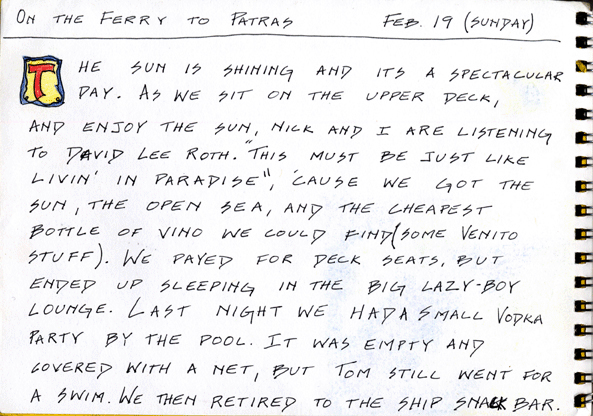 On the Ferry to Patras Feb. 19 (Sunday)
The sun is shining and its a spectacular
day. As we sit on the upper deck,
and enjoy the sun, Nick and I are listening
to David Lee Roth. "This must be just like
livin' in paradise", 'cause we got the
sun, the open sea, and the cheapest
bottle of vino we could find (some Venito
stuff). We payed for deck seats, but
ended up sleeping in the big lazy-boy
lounge. Last night we had a small vodka
party by the pool. It was empty and
covered with a net, but Tom still went for
a swim. We then retired to the ship snack bar.